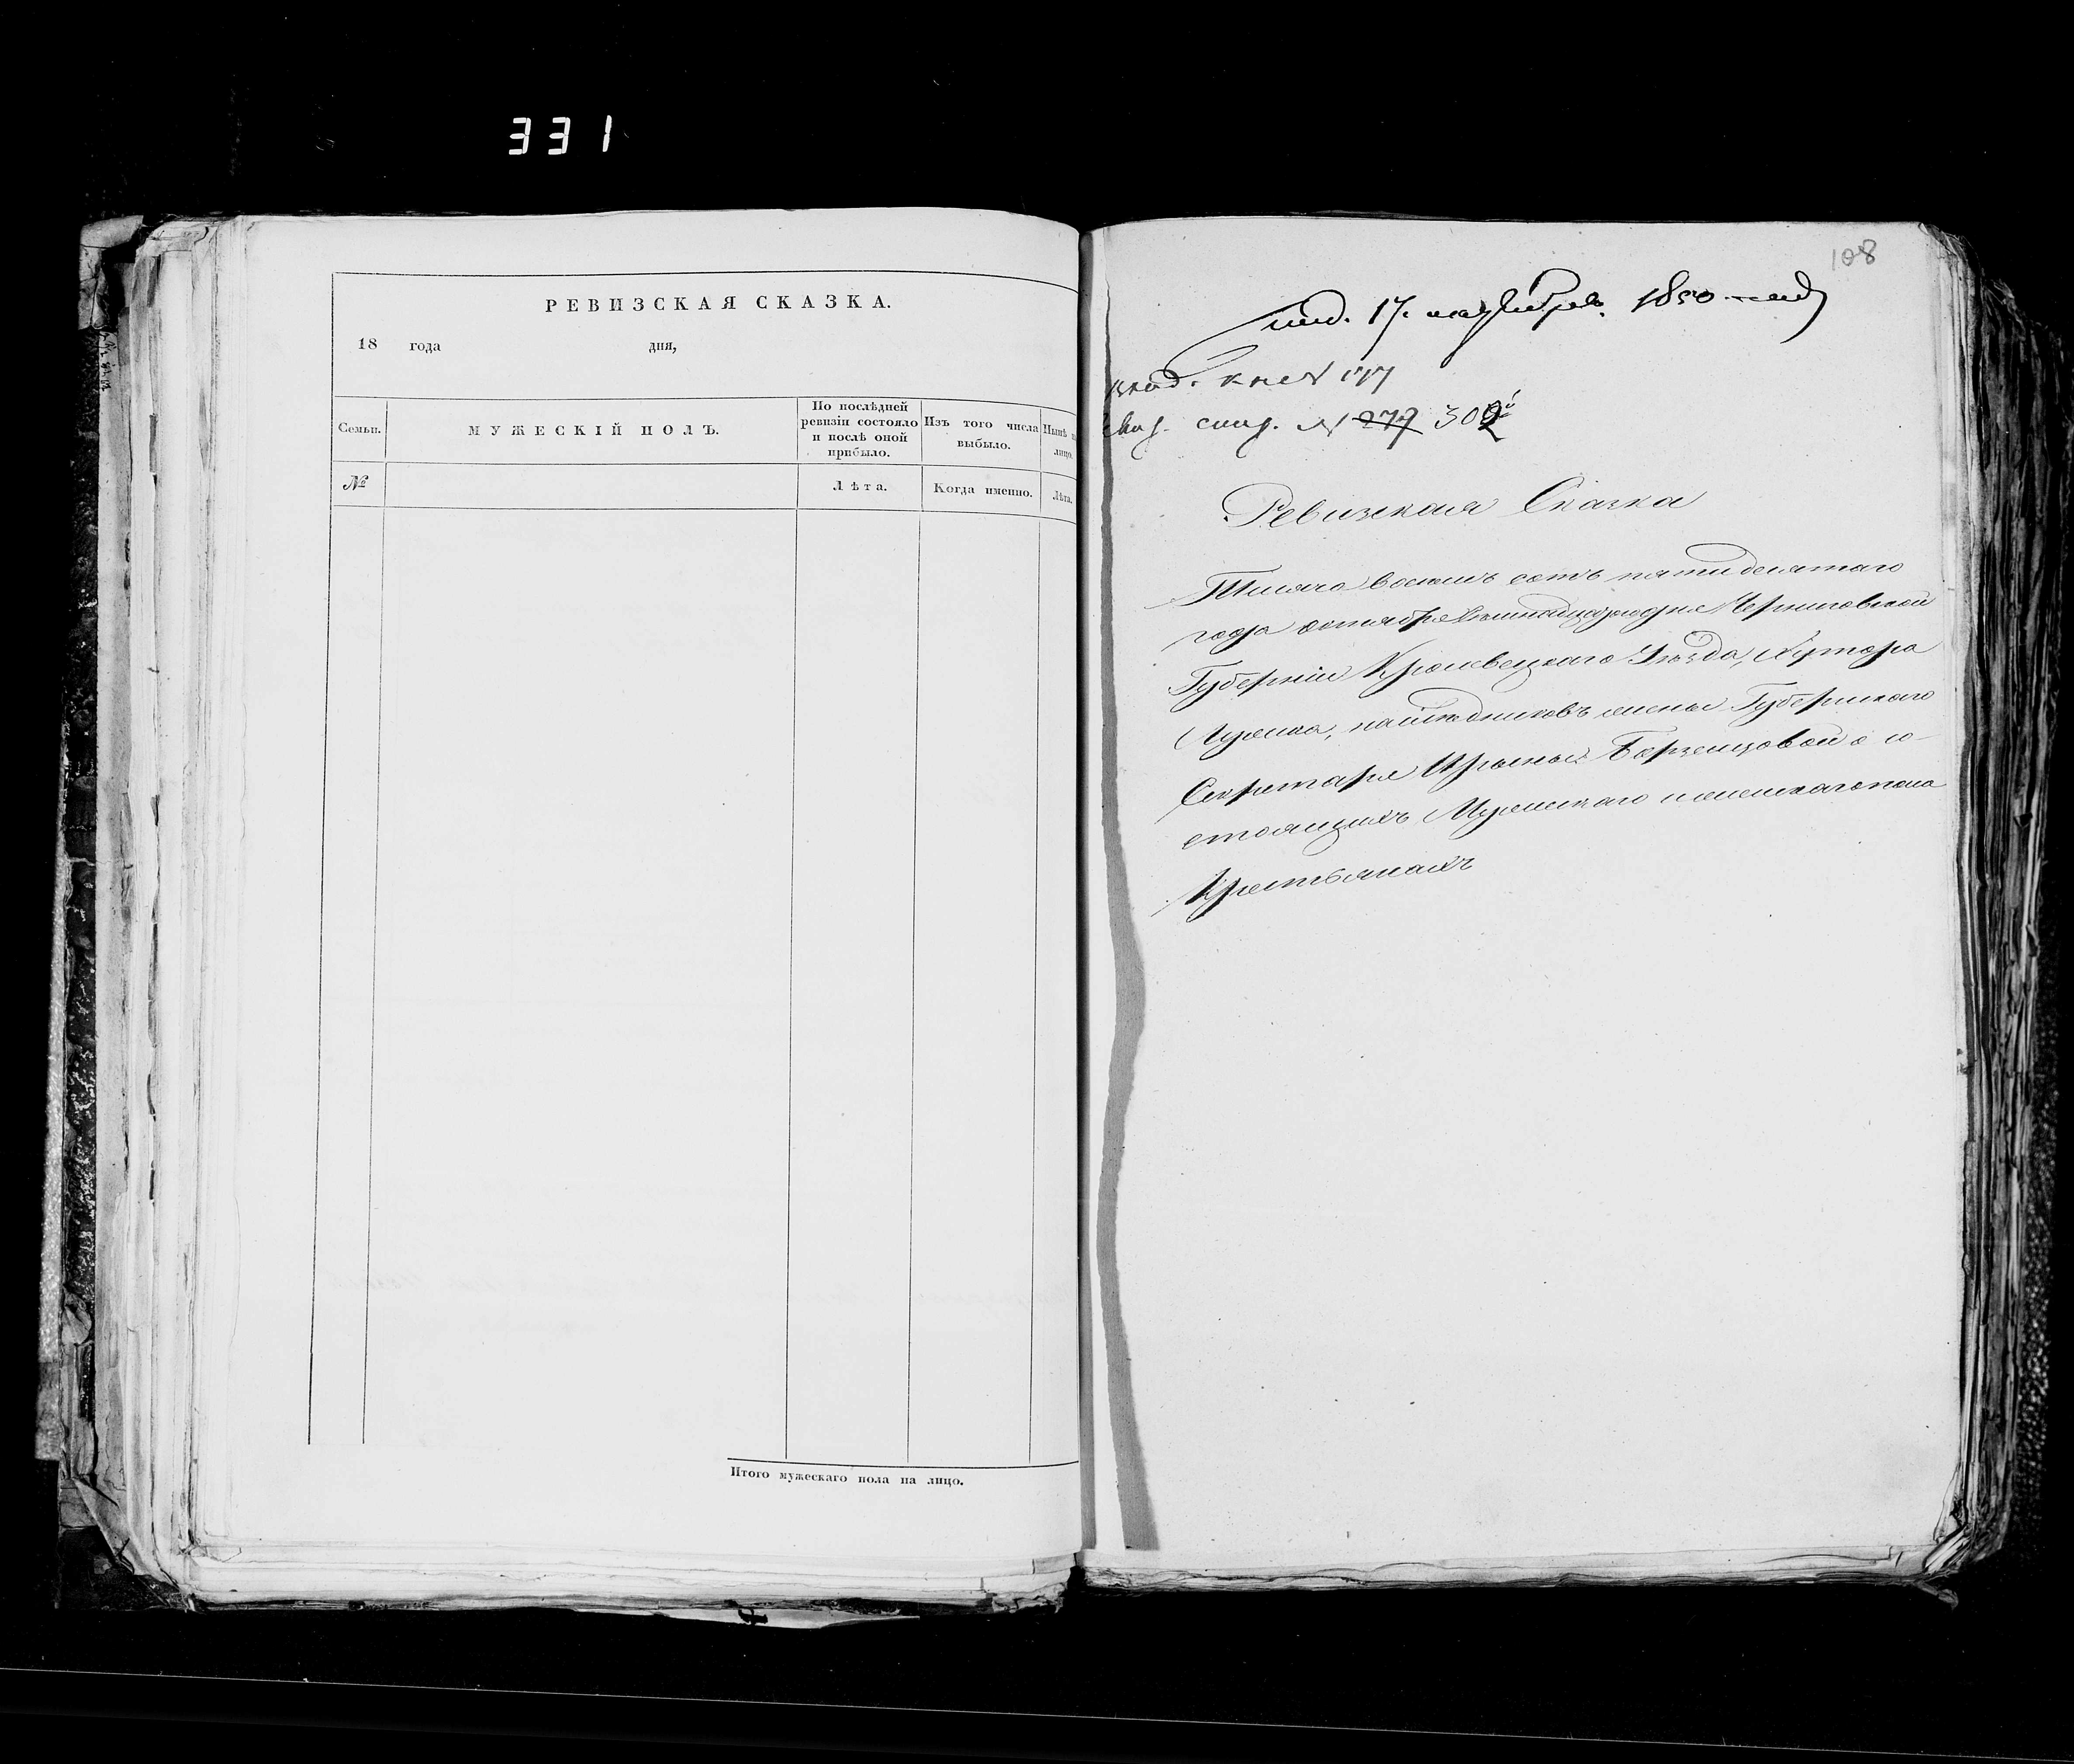 331
РЕВИЗСКАЯ СКАЗКА.
18 года дня,
Семьи.
МУЖЕСКІЙ ПОЛЪ.
По послѣдней ревизіи состояло и послѣ оной прибыло.
Изъ того числа выбыло.
Нынѣ
лицо.
№
Лѣта.
Когда именно.
Лѣта.
Итого мужескаго пола на лицо.
108
17. 1850 года
№ 177
№ 277 302
Ревизская Сказка
Тысяча восемь сотъ пятидесятаго
года октября дня Черниговской
Губерніи Кролевецкаго Уѣзда, Хутора
наслѣдниковъ жены Губернскаго
Секретаря Ирины Борзенцовой о со-
стоящихъ Мужескаго и женскаго пола
Крестьянахъ